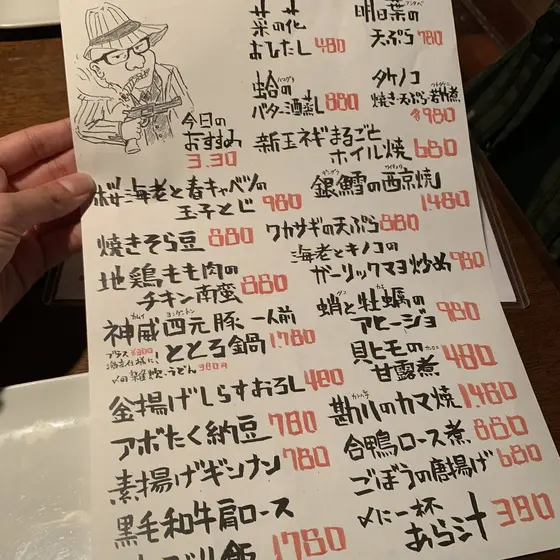 菜の花
おひたし 480
アシタバ
明日葉の
天ぷら 780
ハマグリ
蛤の
バター酒蒸し 880
タケノコ
焼き・天ぷら・若竹煮
各980
今日の
おすすめ
3.30
新玉ネギまるごと
ホイル焼 680
桜海老と春キャベツの
玉子とじ 980
銀鱈の西京焼
1480
焼きそら豆 880
ワカサギの天ぷら 880
地鶏もも肉の
チキン南蛮 880
海老とキノコの
ガーリックマヨ炒め 980
カムイ ヨンゲントン
神威四元豚 一人前
ととろ鍋 1780
プラス¥300
〆の雑炊・うどん 380円
蛸と牡蠣の
アヒージョ 980
貝ヒモの
甘露煮 480
釜揚げしらすおろし 480
勘八のカマ焼 1,480
アボたく納豆 780
合鴨ロース煮 880
素揚げギンナン 780
ごぼうの唐揚げ 680
黒毛和牛肩ロース
1780
〆に一杯
あら汁 390